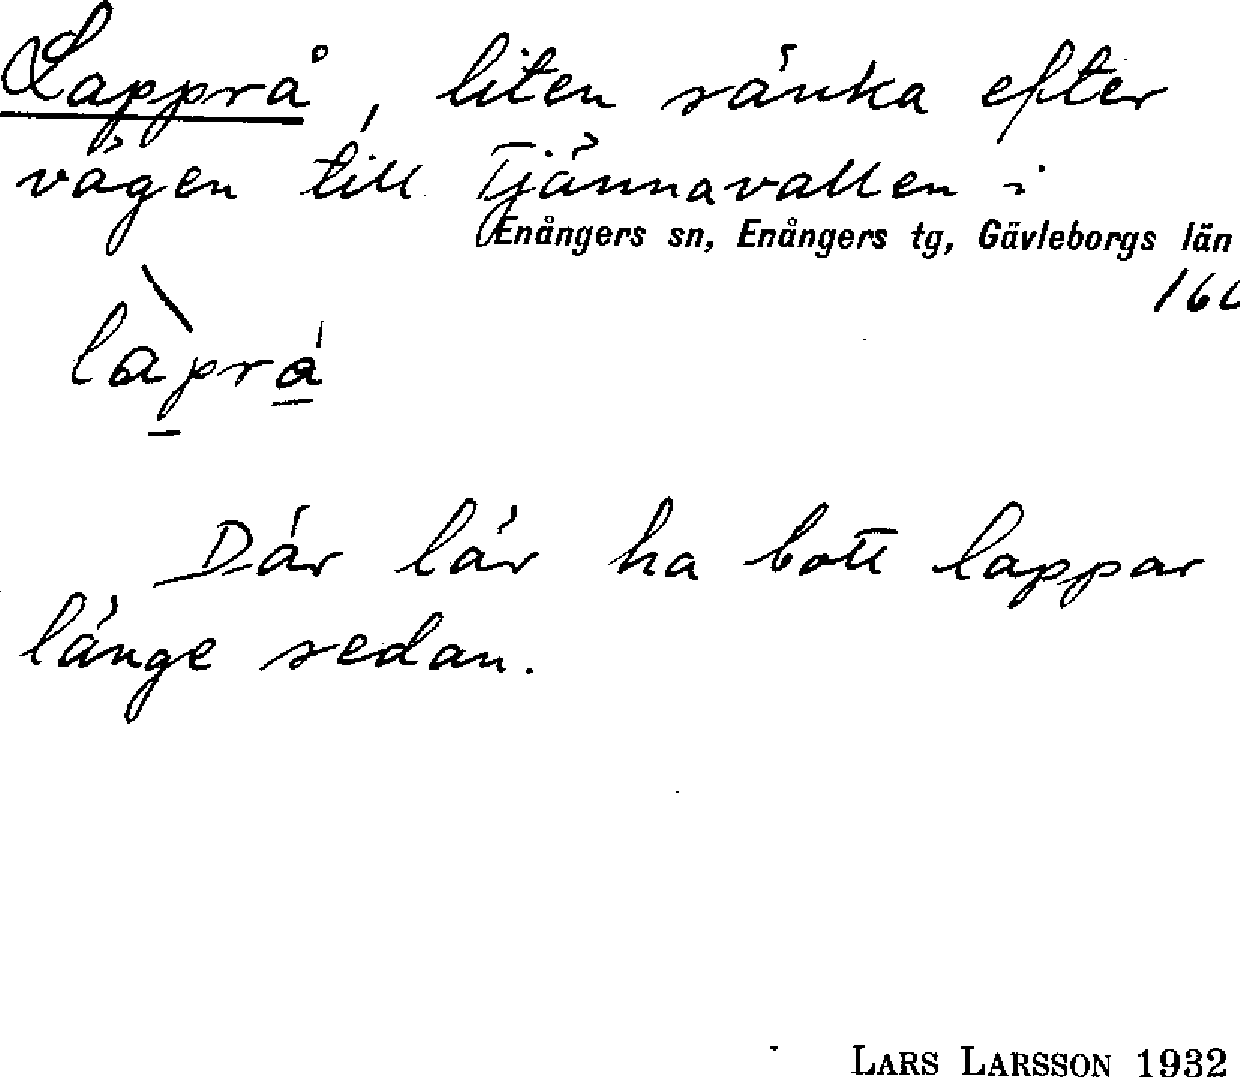 Lapprå, liten sänka efter
vägen till Tjännavallen i
Enångers sn, Enångers tg, Gävleborgs län
làprá
Där lär ha bott lappar
länge sedan.
LARS LARSSON 1932